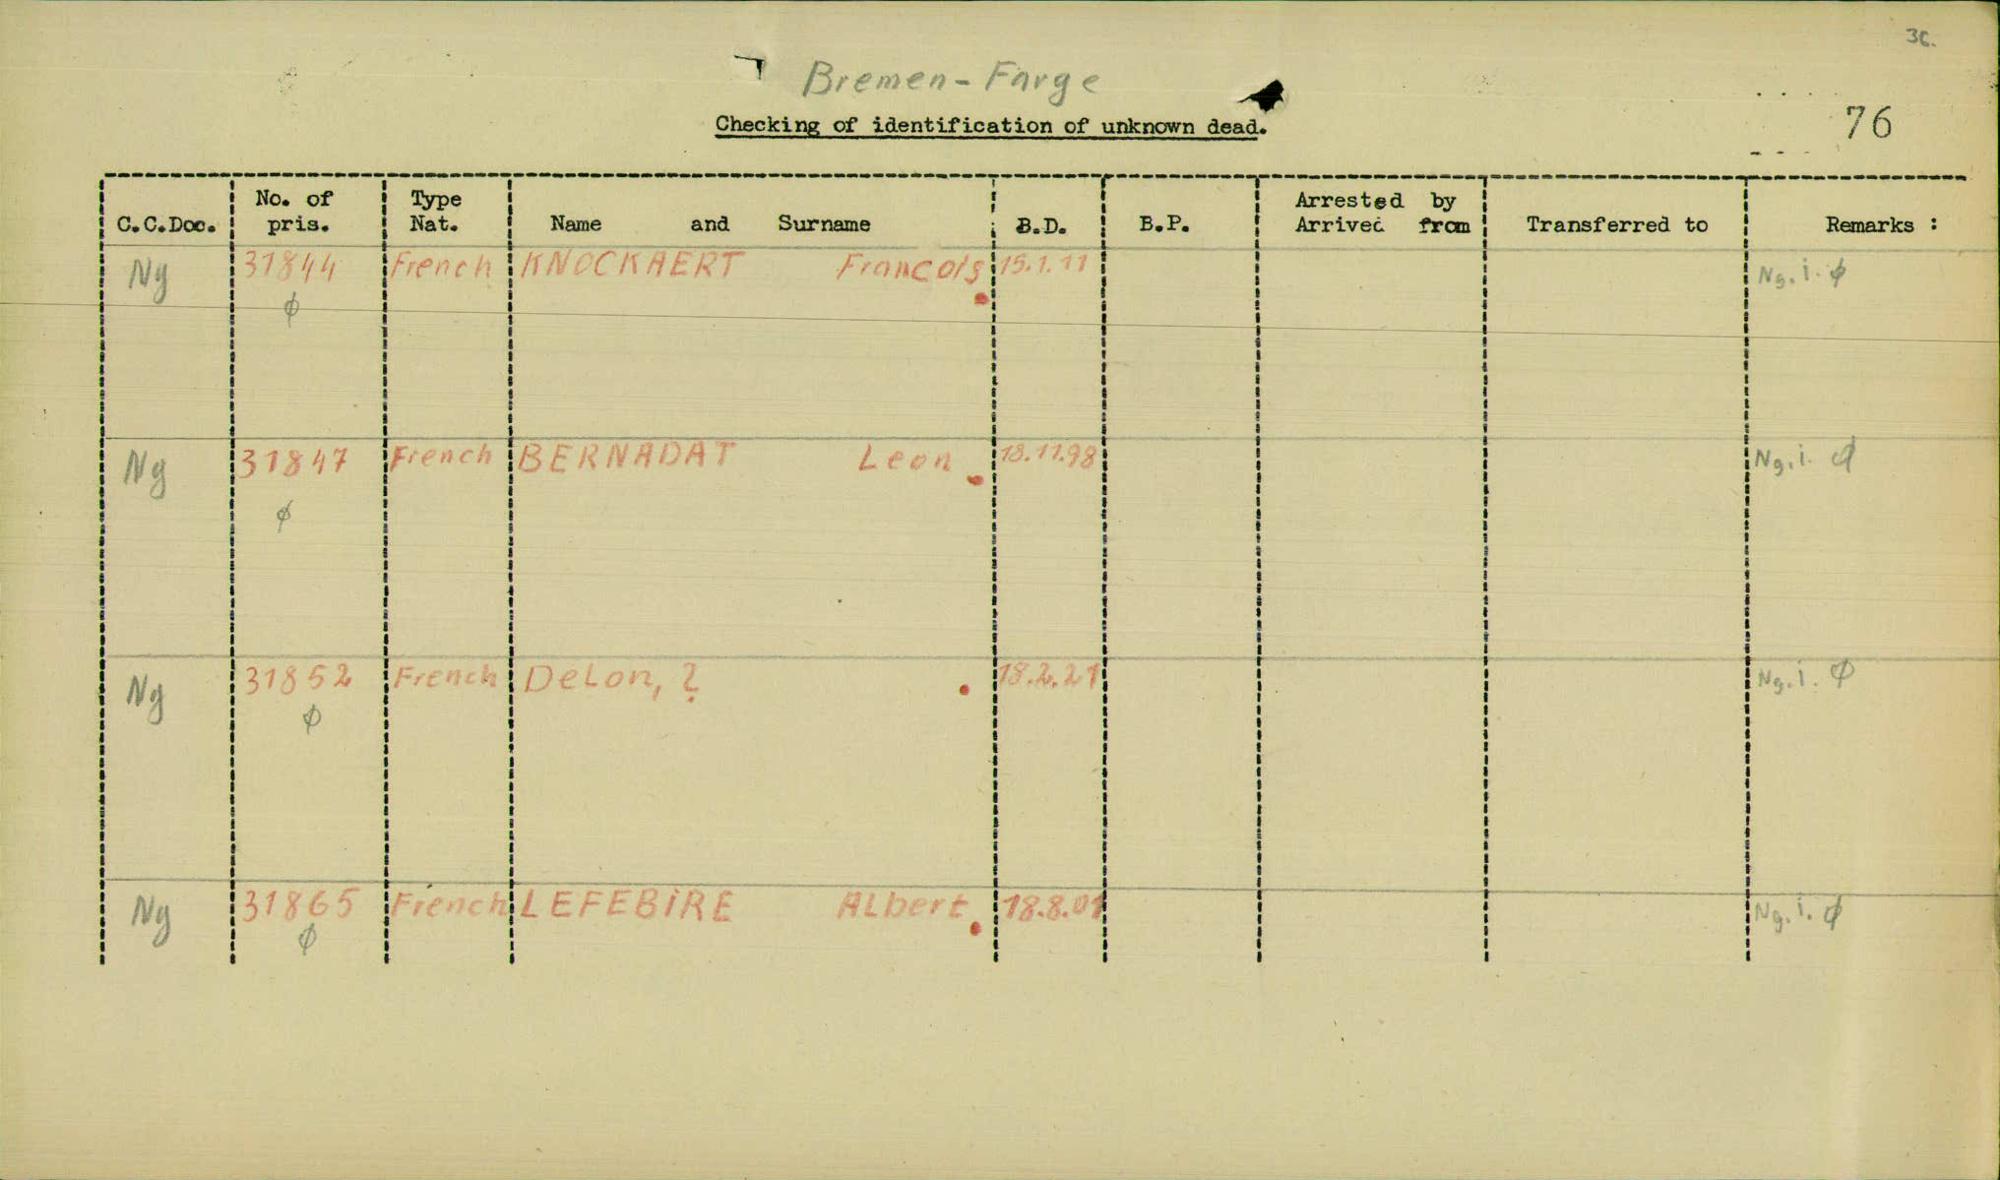 36.
Bremen-Farge
Checking of identification of unknown dead.
76
C.C.Doc. No. of pris. Type Nat. Name and Surname B.D. B.P. Arrested by Arrived from Transferred to Remarks :
Ng 31844 French KNOCKAERT Francois 15.1.11 Ng.i. ϕ
ϕ
Ng 31847 French BERNADAT Leon 18.11.98 Ng.i. ϕ
ϕ
Ng 31852 French DeLon, ? 18.2.21 Ng.i. ϕ
ϕ
Ng 31865 French LEFEBIRE ALbert 18.8.01 Ng.i. ϕ
ϕ